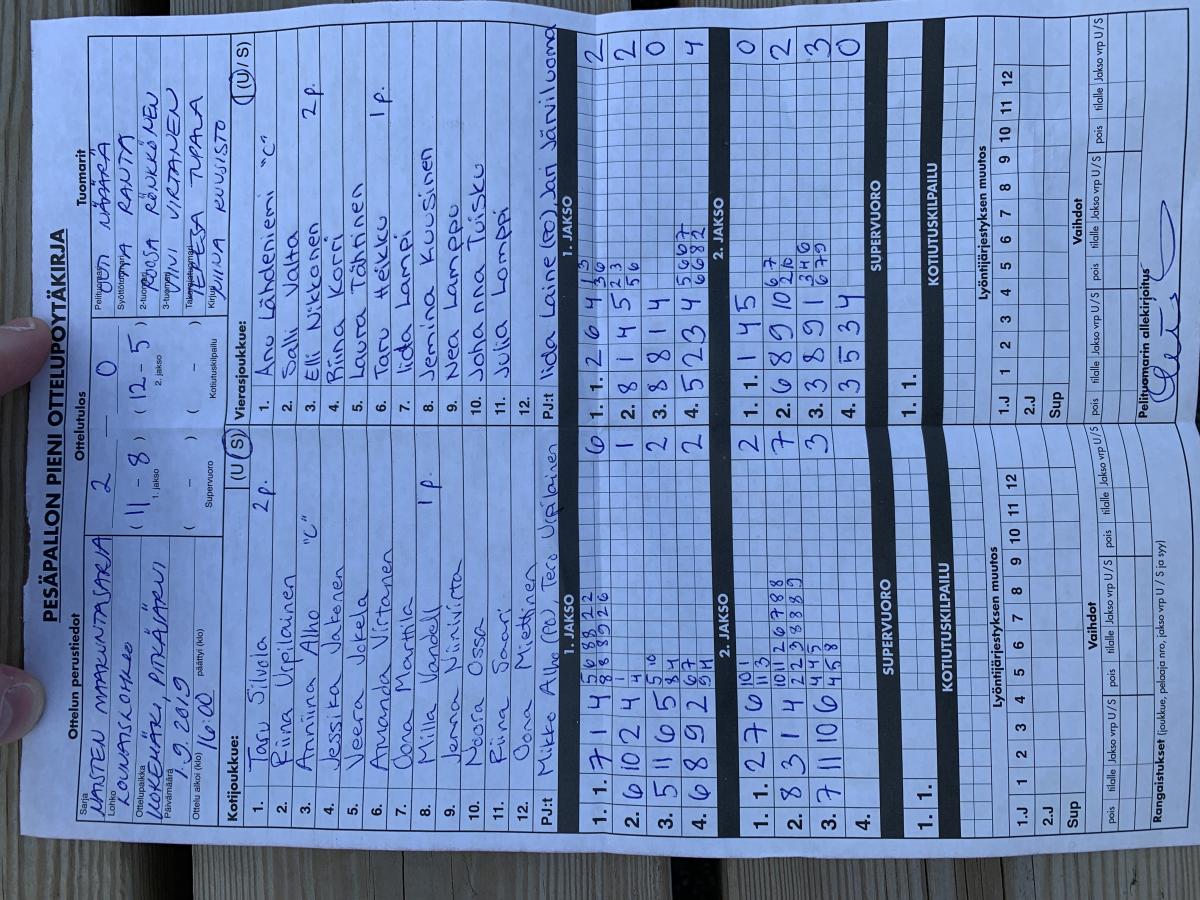 PESÄPALLON PIENI OTTELUPÖYTÄKIRJA
Ottelun perustiedot
Ottelutulos
Tuomarit
Sarja
NAISTEN MAAKUNTASARJA
Lohko
LOUNAISLOHKO
Ottelupaikka
KOKEMÄKI, PITKÄJÄRVI
Päivämäärä
1.9.2019
Ottelu alkoi (klo) 16:00 päättyi (klo)
2 — 0
( 11 - 8 ) ( 12 - 5 )
1. jakso 2. jakso
( - ) ( - )
Supervuoro Kotiutuskilpailu
Pelituomari OUTI NÄPÄRÄ
Syöttötuomari RANTA
2-tuomari ROOSA RÖNKKÖNEN
3-tuomari VIIVI VIRTANEN
Takarajatuomari TUPALA
Kirjuri NIINA KUUSISTO
Kotijoukkue: (U / S)
1. Taru Silvola 2p.
2. Riina Urpilainen
3. Anniina Alho "C"
4. Jessika Jakonen
5. Veera Jokela
6. Amanda Virtanen
7. Oona Marttila
8. Milla Vandell 1p.
9. Jenna Niiniviita
10. Noora Ossa
11. Riina Saari
12. Oona Miettinen
PJ:t Mikko Alho (PJ), Tero Urpilainen
Vierasjoukkue: (U / S)
1. Anu Lähdeniemi "C"
2. Salli Valta
3. Elli Nikkanen 2p.
4. Riina Kori
5. Laura Tähtinen
6. Taru Heikku 1p.
7. Iida Lampi
8. Jemina Kuusinen
9. Nea Lamppu
10. Johanna Tuisku
11. Julia Lamppi
12.
PJ:t Iida Laine (PJ), Jari Järviluoma
1. JAKSO
1. 1. 7 1 4 5 6 8 8 2 2 6
8 8 8 9 2 6
2. 6 10 2 4 1 1
4
3. 5 11 6 5 5 10 2
8 4
4. 6 8 9 2 6 7 2
9 11
2. JAKSO
1. 1. 2 7 6 10 1 2
11 3
2. 8 3 1 4 10 11 2 6 7 8 8 7
2 2 3 8 8 8 9
3. 7 11 10 6 4 4 5 3
4 5 8
4.
SUPERVUORO
1. 1.
KOTIUTUSKILPAILU
1. 1.
Lyöntijärjestyksen muutos
1.J 1 2 3 4 5 6 7 8 9 10 11 12
2.J
Sup
Vaihdot
pois tilalle Jakso vrp U / S pois tilalle Jakso vrp U / S pois tilalle Jakso vrp U / S
Rangaistukset (joukkue, pelaaja nro, jakso vrp U / S ja syy)
1. JAKSO
1. 1. 2 6 4 1 3 2
3 6
2. 8 1 4 5 2 3 2
5 6
3. 8 8 1 4 0
4. 5 2 3 4 5 6 6 7 4
6 6 8 2
2. JAKSO
1. 1. 1 4 5 0
2. 6 8 9 10 6 7 2
2 10
3. 3 8 9 1 3 4 6 3
6 7 9
4. 3 5 3 4 0
SUPERVUORO
1. 1.
KOTIUTUSKILPAILU
1. 1.
Lyöntijärjestyksen muutos
1.J 1 2 3 4 5 6 7 8 9 10 11 12
2.J
Sup
Vaihdot
pois tilalle Jakso vrp U / S pois tilalle Jakso vrp U / S pois tilalle Jakso vrp U / S
Pelituomarin allekirjoitus